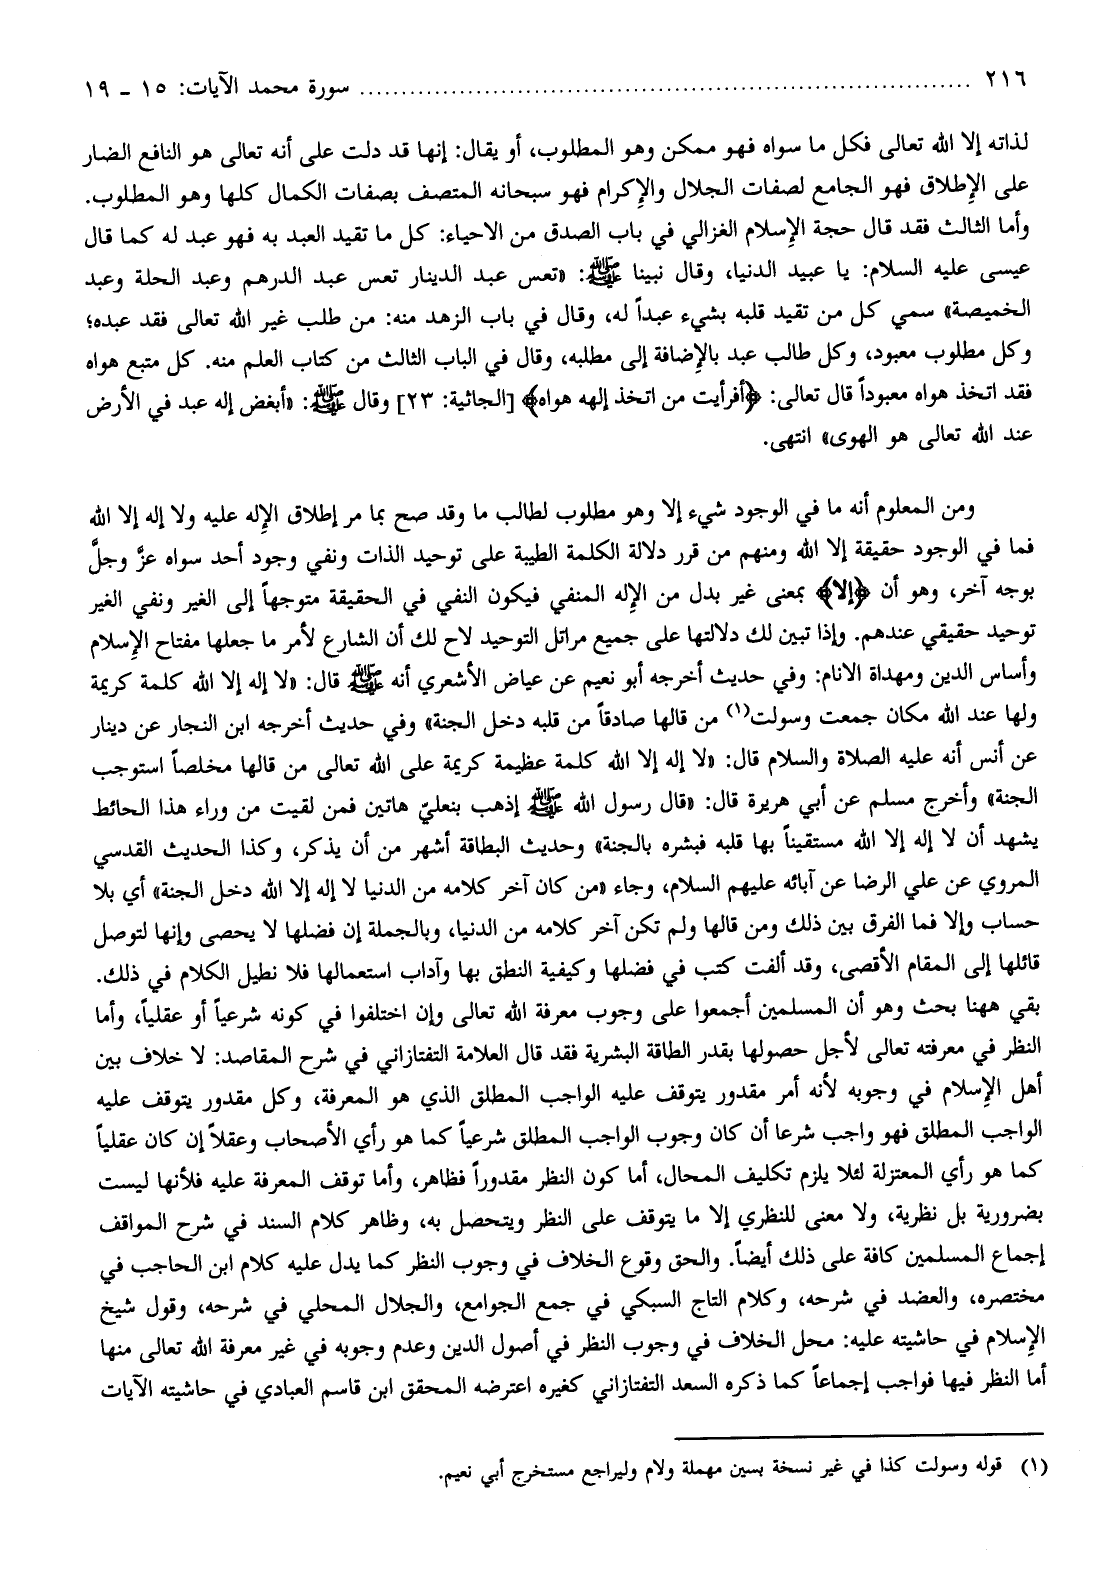 ٢١٦ ........................................................................ سورة محمد الآيات: ١٥ - ١٩
لذاته إلا الله تعالى فكل ما سواه فهو ممكن وهو المطلوب، أو يقال: إنها قد دلت على أنه تعالى هو النافع الضار
على الإطلاق فهو الجامع لصفات الجلال والإكرام فهو سبحانه المتصف بصفات الكمال كلها وهو المطلوب.
وأما الثالث فقد قال حجة الإسلام الغزالي في باب الصدق من الاحياء: كل ما تقيد العبد به فهو عبد له كما قال
عيسى عليه السلام: يا عبيد الدنيا، وقال نبينا ﷺ: «تعس عبد الدينار تعس عبد الدرهم وعبد الحلة وعبد
الخميصة» سمي كل من تقيد قلبه بشيء عبداً له، وقال في باب الزهد منه: من طلب غير الله تعالى فقد عبده؛
وكل مطلوب معبود، وكل طالب عبد بالإضافة إلى مطلبه، وقال في الباب الثالث من كتاب العلم منه. كل متبع هواه
فقد اتخذ هواه معبوداً قال تعالى: ﴿أفرأيت من اتخذ إلهه هواه﴾ [الجاثية: ٢٣] وقال ﷺ: «أبغض إله عبد في الأرض
عند الله تعالى هو الهوى» انتهى.
ومن المعلوم أنه ما في الوجود شيء إلا وهو مطلوب لطالب ما وقد صح بما مر إطلاق الإله عليه ولا إله إلا الله
فما في الوجود حقيقة إلا الله ومنهم من قرر دلالة الكلمة الطيبة على توحيد الذات ونفي وجود أحد سواه عزَّ وجلَّ
بوجه آخر، وهو أن ﴿إلا﴾ بمعنى غير بدل من الإله المنفي فيكون النفي في الحقيقة متوجهاً إلى الغير ونفي الغير
توحيد حقيقي عندهم. وإذا تبين لك دلالتها على جميع مراتل التوحيد لاح لك أن الشارع لأمر ما جعلها مفتاح الإسلام
وأساس الدين ومهداة الانام: وفي حديث أخرجه أبو نعيم عن عياض الأشعري أنه ﷺ قال: «لا إله إلا الله كلمة كريمة
ولها عند الله مكان جمعت وسولت(١) من قالها صادقاً من قلبه دخل الجنة» وفي حديث أخرجه ابن النجار عن دينار
عن أنس أنه عليه الصلاة والسلام قال: «لا إله إلا الله كلمة عظيمة كريمة على الله تعالى من قالها مخلصاً استوجب
الجنة» وأخرج مسلم عن أبي هريرة قال: «قال رسول الله ﷺ إذهب بنعليّ هاتين فمن لقيت من وراء هذا الحائط
يشهد أن لا إله إلا الله مستقيناً بها قلبه فبشره بالجنة» وحديث البطاقة أشهر من أن يذكر، وكذا الحديث القدسي
المروي عن علي الرضا عن آبائه عليهم السلام، وجاء «من كان آخر كلامه من الدنيا لا إله إلا الله دخل الجنة» أي بلا
حساب وإلا فما الفرق بين ذلك ومن قالها ولم تكن آخر كلامه من الدنيا، وبالجملة إن فضلها لا يحصى وإنها لتوصل
قائلها إلى المقام الأقصى، وقد ألفت كتب في فضلها وكيفية النطق بها وآداب استعمالها فلا نطيل الكلام في ذلك.
بقي ههنا بحث وهو أن المسلمين أجمعوا على وجوب معرفة الله تعالى وإن اختلفوا في كونه شرعياً أو عقلياً، وأما
النظر في معرفته تعالى لأجل حصولها بقدر الطاقة البشرية فقد قال العلامة التفتازاني في شرح المقاصد: لا خلاف بين
أهل الإسلام في وجوبه لأنه أمر مقدور يتوقف عليه الواجب المطلق الذي هو المعرفة، وكل مقدور يتوقف عليه
الواجب المطلق فهو واجب شرعا أن كان وجوب الواجب المطلق شرعياً كما هو رأي الأصحاب وعقلاً إن كان عقلياً
كما هو رأي المعتزلة لئلا يلزم تكليف المحال، أما كون النظر مقدوراً فظاهر، وأما توقف المعرفة عليه فلأنها ليست
بضرورية بل نظرية، ولا معنى للنظري إلا ما يتوقف على النظر ويتحصل به، وظاهر كلام السند في شرح المواقف
إجماع المسلمين كافة على ذلك أيضاً. والحق وقوع الخلاف في وجوب النظر كما يدل عليه كلام ابن الحاجب في
مختصره، والعضد في شرحه، وكلام التاج السبكي في جمع الجوامع، والجلال المحلي في شرحه، وقول شيخ
الإسلام في حاشيته عليه: محل الخلاف في وجوب النظر في أصول الدين وعدم وجوبه في غير معرفة الله تعالى منها
أما النظر فيها فواجب إجماعاً كما ذكره السعد التفتازاني كغيره اعترضه المحقق ابن قاسم العبادي في حاشيته الآيات
(١) قوله وسولت كذا في غير نسخة بسين مهملة ولام وليراجع مستخرج أبي نعيم.